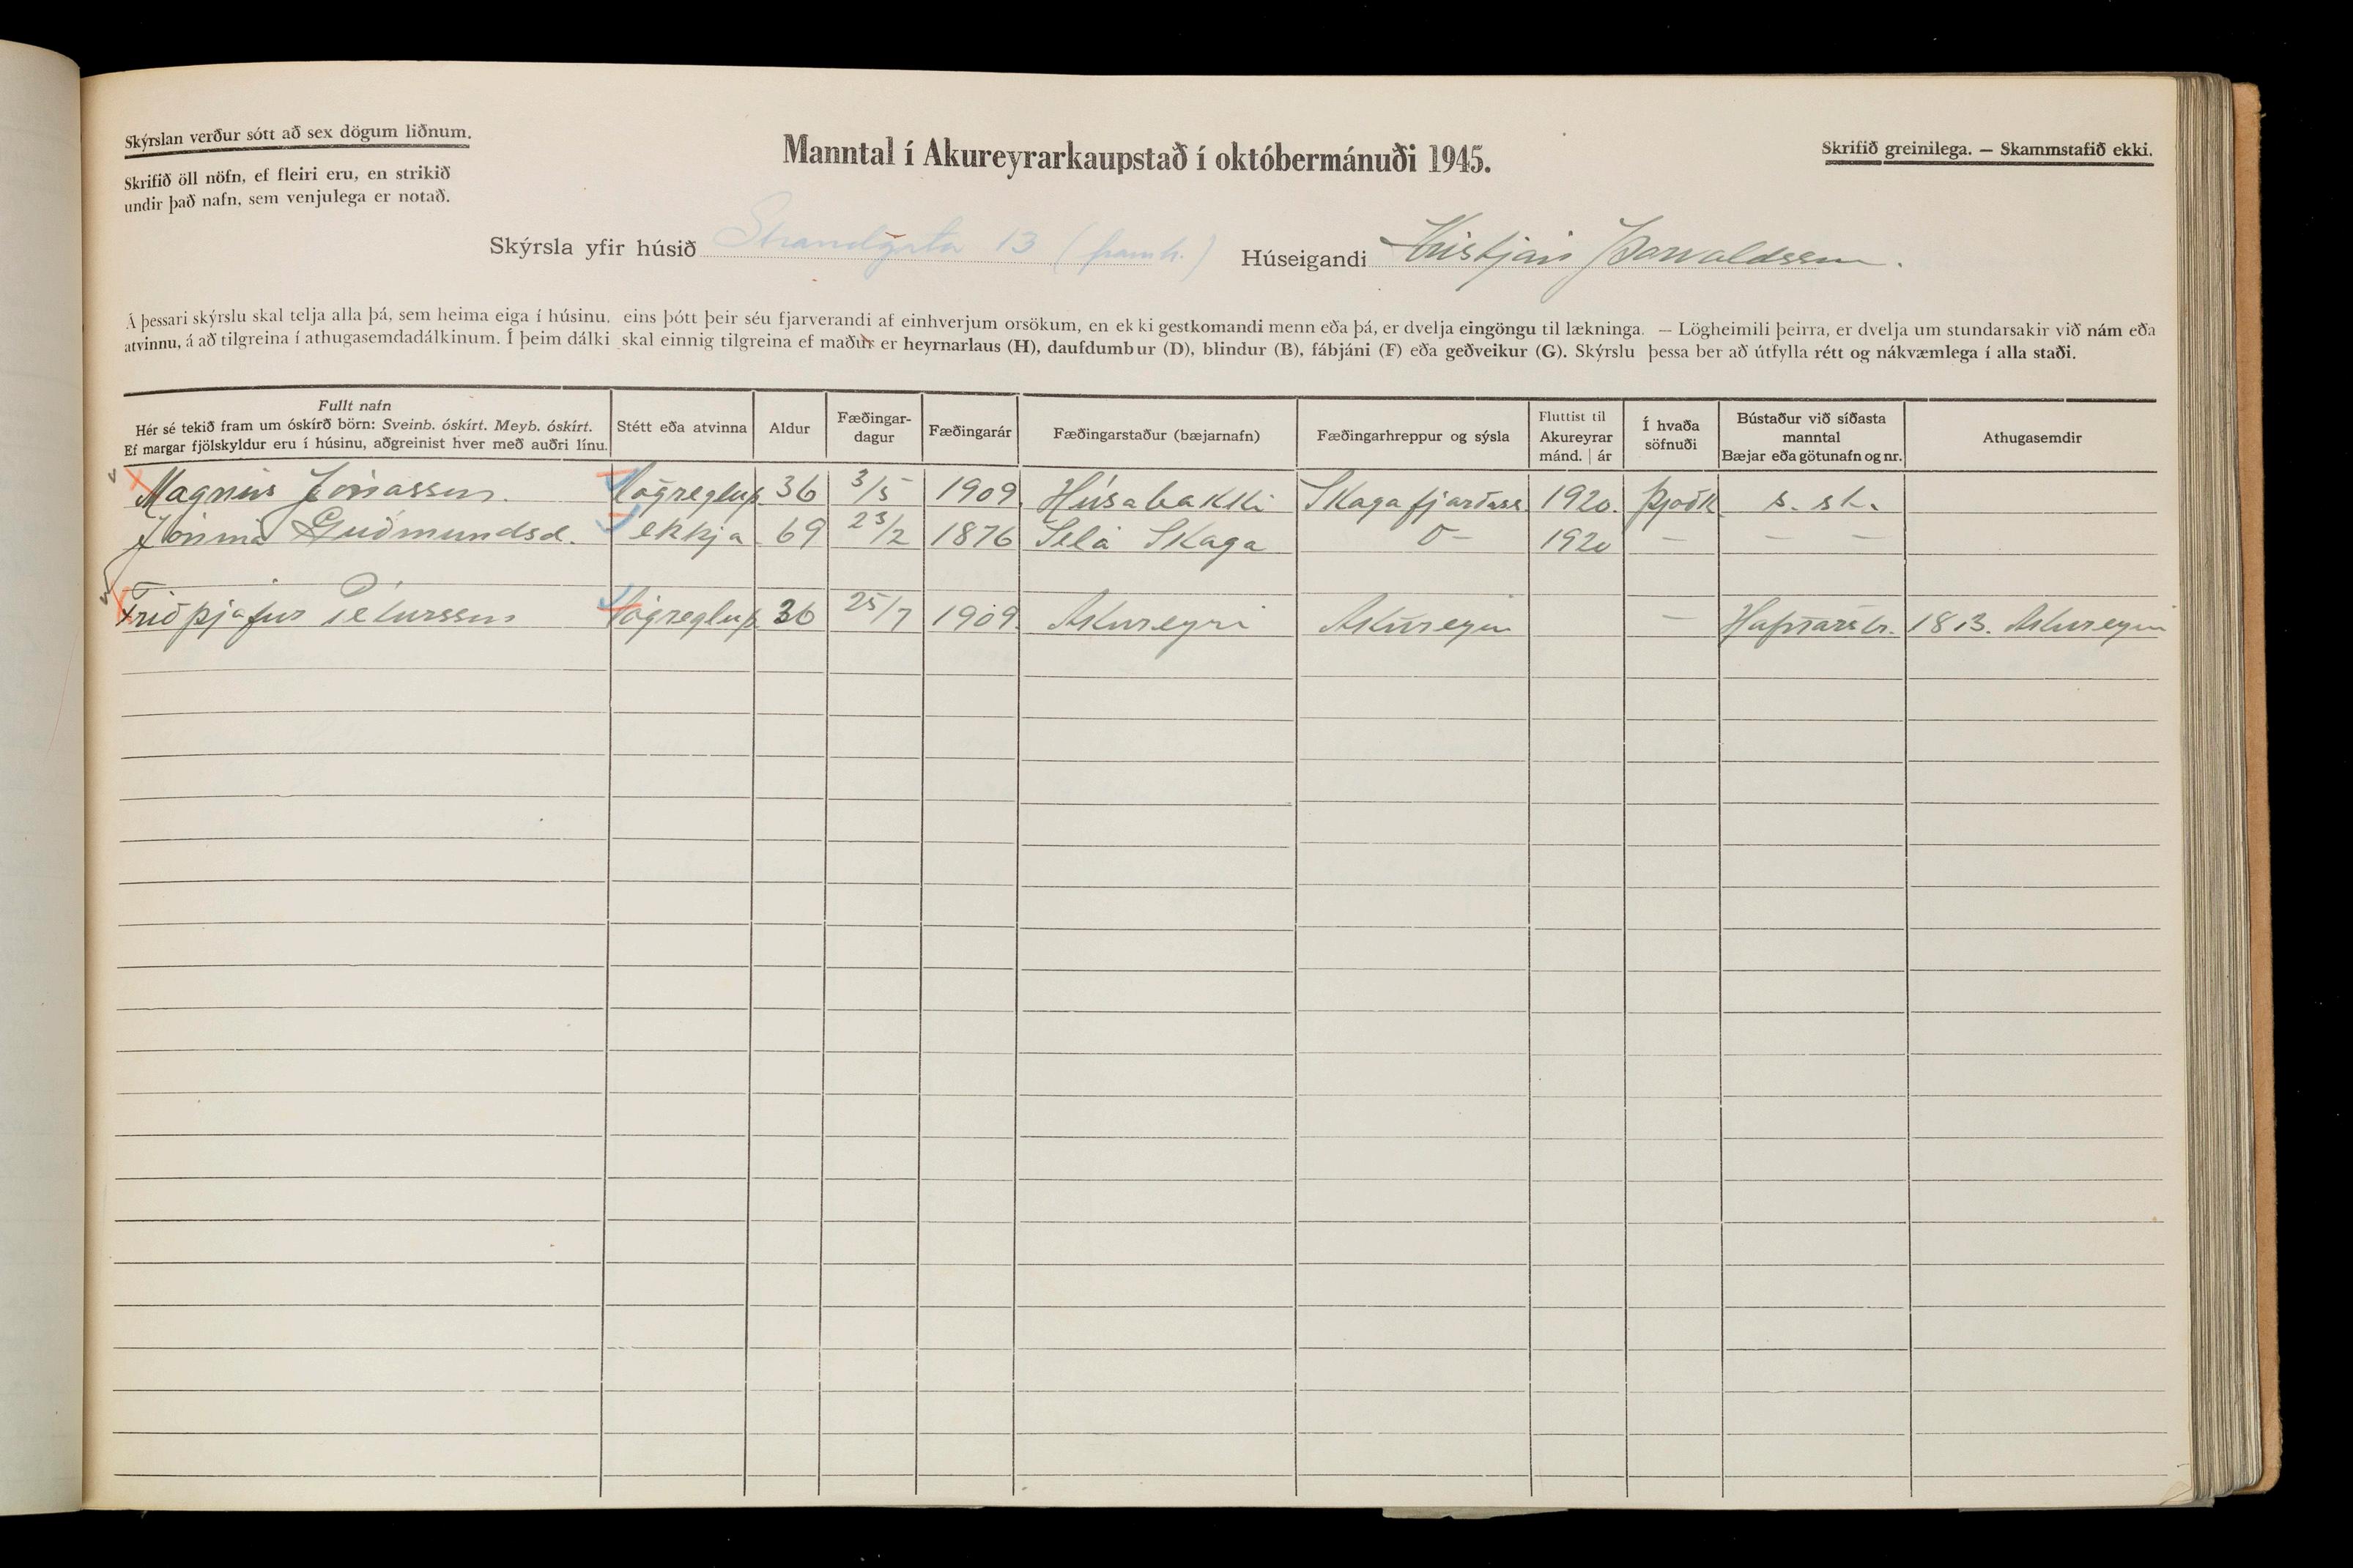 Skýrslan verður sótt að sex dögum liðnum.
Skrifið öll nöfn, ef fleiri eru, en strikið
undir það nafn, sem venjulega er notað.
Manntal í Akureyrarkaupstað í októbermánuði 1945.
Skrifið greinilega. — Skammstafið ekki.
Skýrsla yfir húsið Strandgata 13 (framh.) Húseigandi Kristján Þorvaldsson.
Á þessari skýrslu skal telja alla þá, sem heima eiga í húsinu, eins þótt þeir séu fjarverandi af einhverjum orsökum, en ekki gestkomandi menn eða þá, er dvelja eingöngu til lækninga. — Lögheimili þeirra, er dvelja um stundarsakir við nám eða
atvinnu, á að tilgreina í athugasemdadálkinum. Í þeim dálki skal einnig tilgreina ef maður er heyrnarlaus (H), daufdumbur (D), blindur (B), fábjáni (F) eða geðveikur (G). Skýrslu þessa ber að útfylla rétt og nákvæmlega í alla staði.
Fullt nafn
Hér sé tekið fram um óskírð börn: Sveinb. óskírt. Meyb. óskírt.
Ef margar fjölskyldur eru í húsinu, aðgreinist hver með auðri línu.
Stétt eða atvinna
Aldur
Fæðingar-
dagur
Fæðingarár
Fæðingarstaður (bæjarnafn)
Fæðingarhreppur og sýsla
Fluttist til
Akureyrar
mánd. | ár
Í hvaða
söfnuði
Bústaður við síðasta
manntal
Bæjar eða götunafn og nr.
Athugasemdir
Magnús Jónasson. Lögregluþ. 36 3/5 1909. Húsabakki Skagafjarðars. 1920. þjóðk. s. st.
Jónína Guðmundsd. ekkja 69 23/2 1876 Selá Skaga 0– 1920 – – –
Friðþjófur Pétursson Lögregluþ. 36 25/7 1909. Akureyri Akureyri – Hafnarstr. 18 B. Akureyri